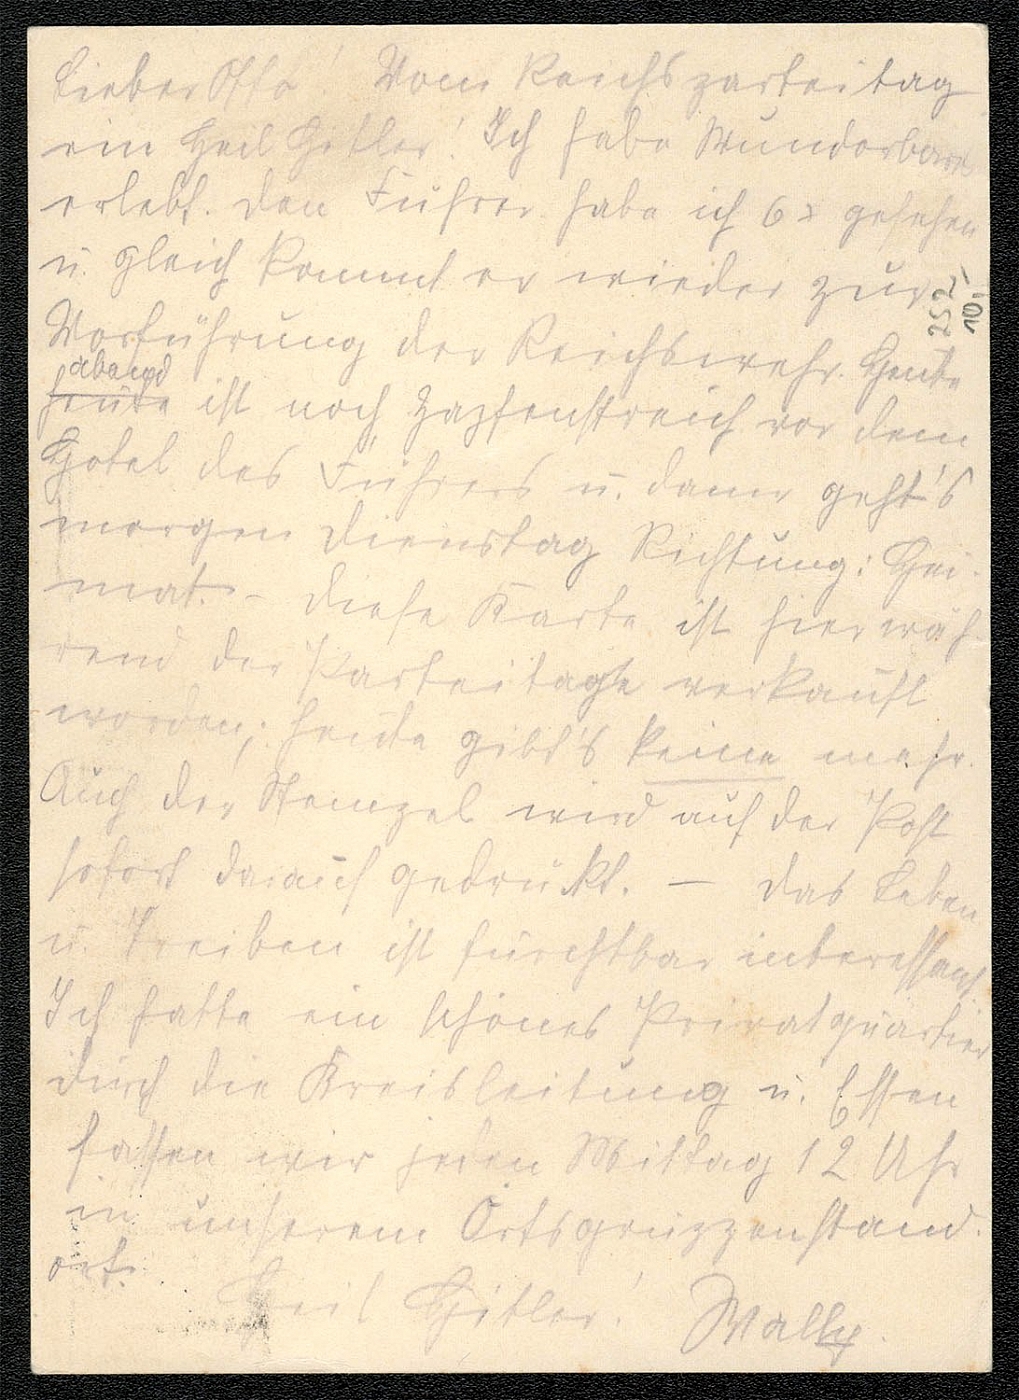 Lieber Otto! Vom Reichsparteitag
ein Heil Hitler! Ich habe Wunderbares
erlebt. Den Führer habe ich 6x gesehen
u. gleich kommt er wieder zur
Vorführung der Reichswehr. Heute
abend
heute ist noch Zapfenstreich vor dem
Hotel des Führers u. dann geht's
morgen Dienstag Richtung: Hei-
mat. – Diese Karte ist hier wäh-
rend der Parteitage verkauft
worden; heute gibt's keine mehr.
Auch der Stempel wird auf der Post
sofort darauf gedrückt. – Das Leben
u. Treiben ist furchtbar interessant.
Ich hatte ein schönes Privatquartier
durch die Kreisleitung u. Essen
fassen wir jeden Mittag 12 Uhr
in unserem Ortsgruppenstand-
ort.
Heil Hitler! Wally.
252
10,-